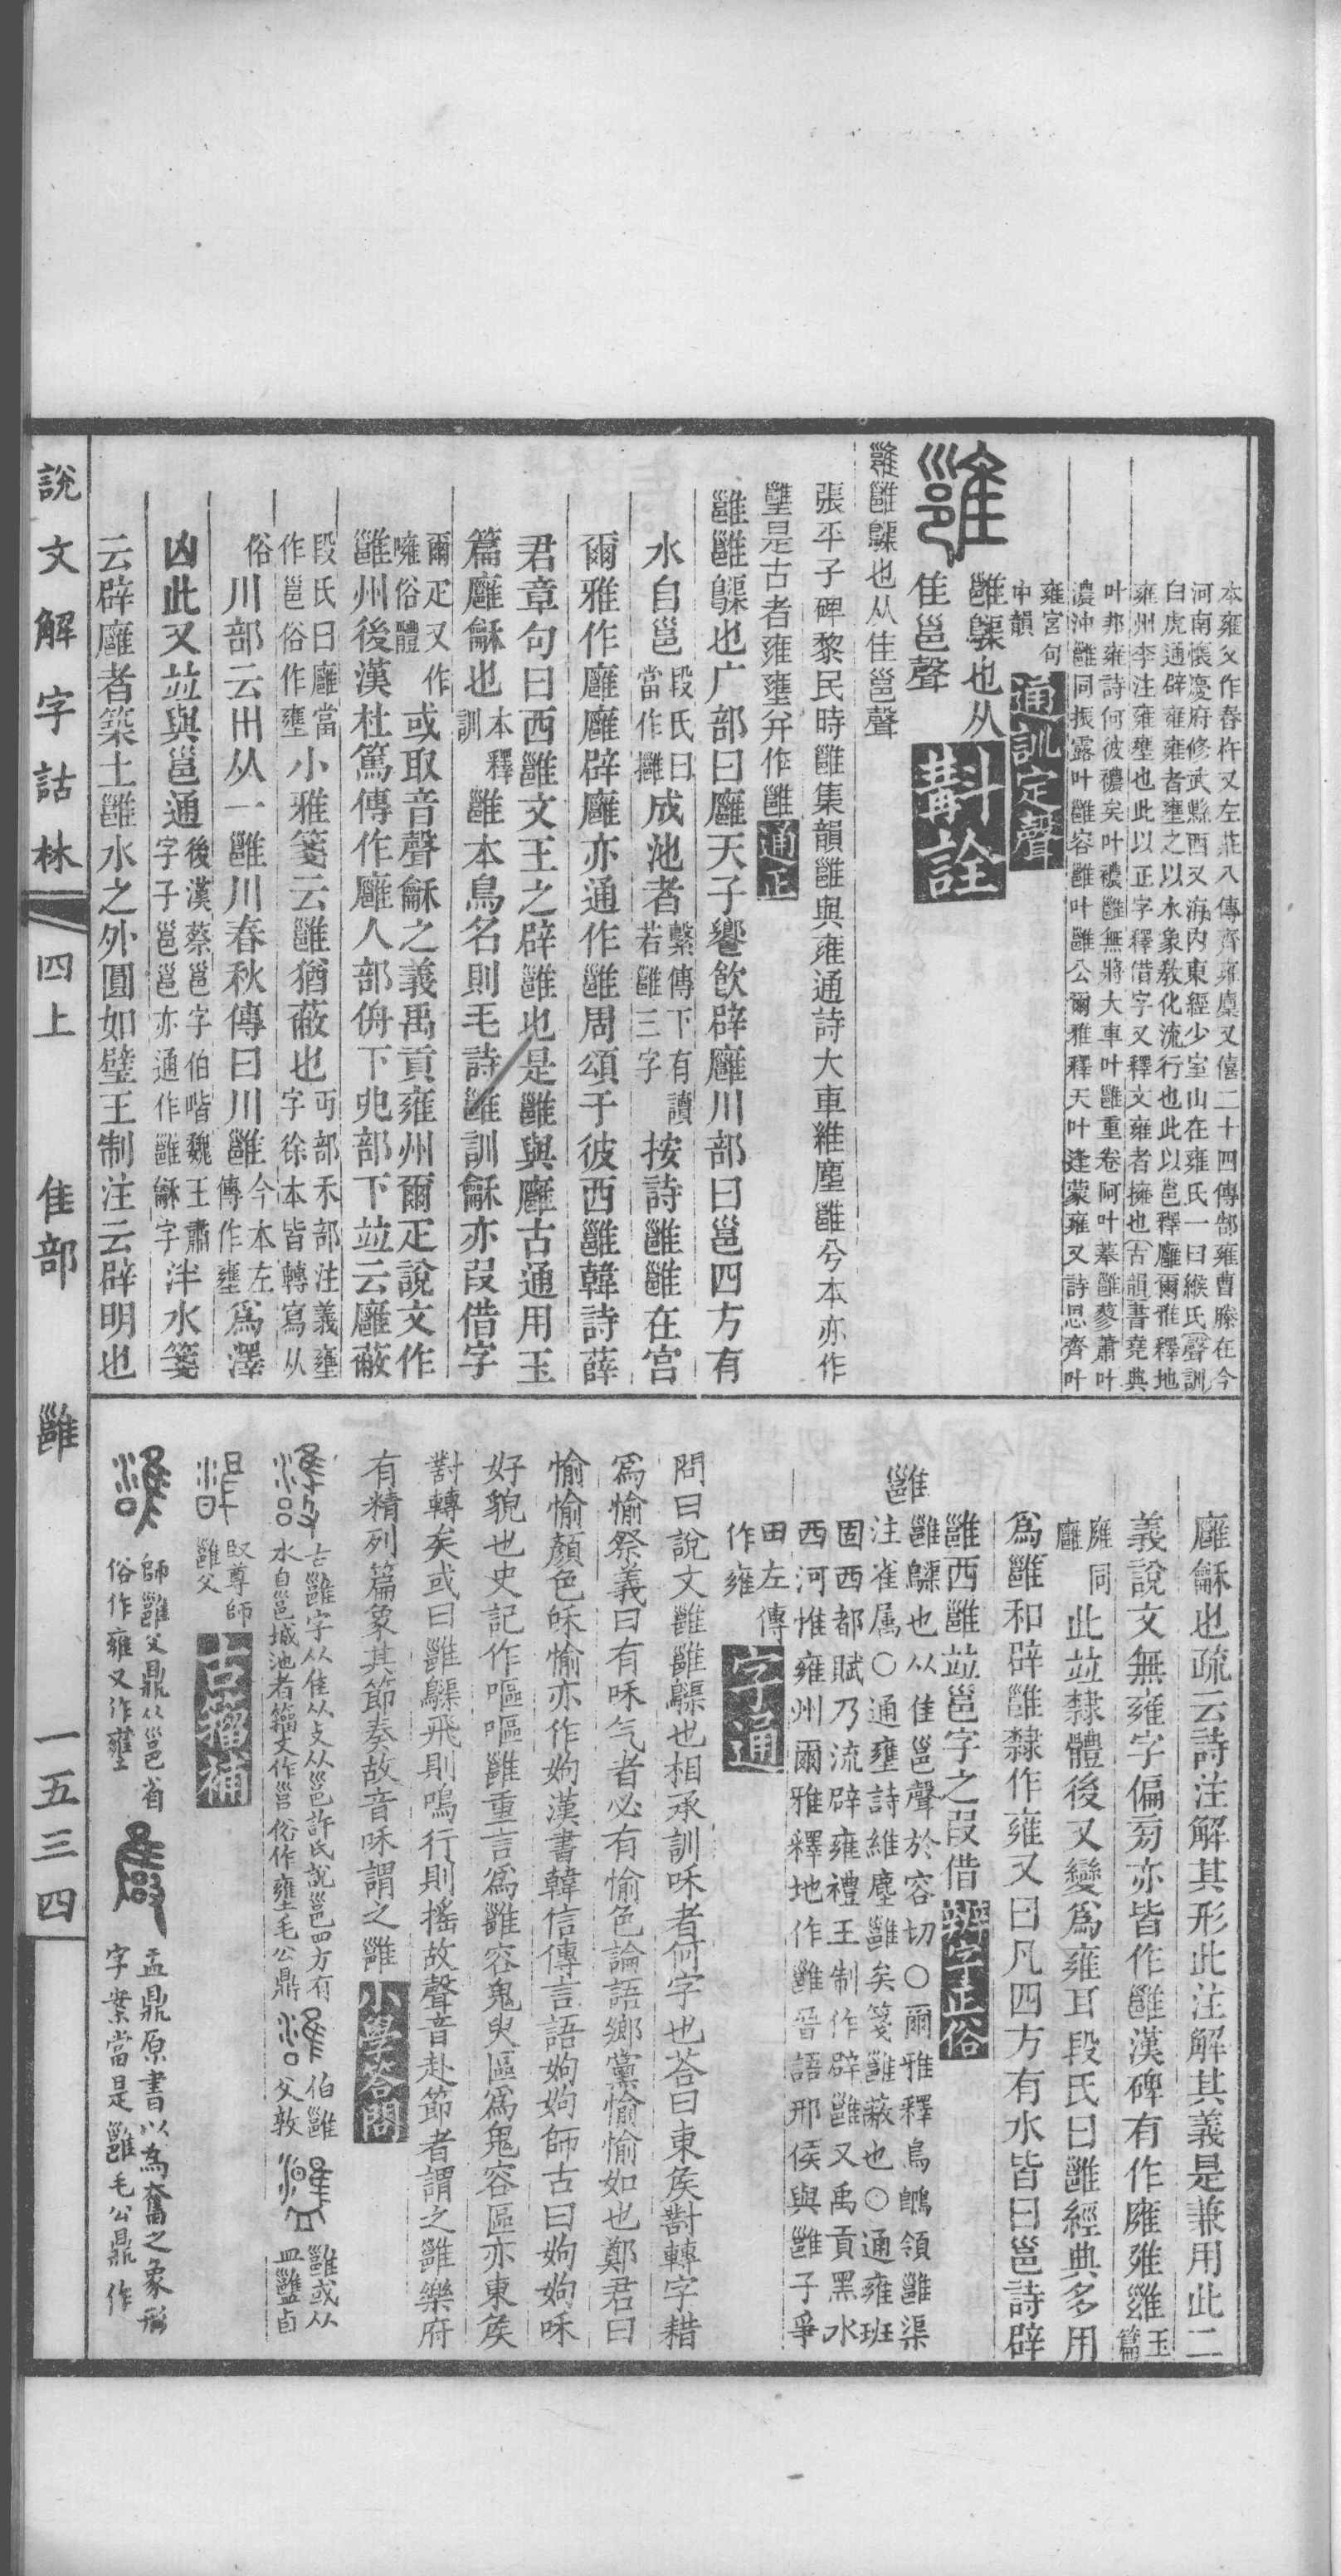 本雍父作舂杵又左莊八傳齊雍廩又僖二十四傳郜雍曹滕在今
河南懷慶府修武縣西又海內東經少室山在雍氏一曰緱氏聲訓
白虎通辟雍雍者壅之以水象教化流行也此以邕釋廱爾雅釋地
雍州李注雍壅也此以正字釋借字又釋文雍者擁也古韻書堯典
叶邦雍詩何彼穠矣叶穠雝無將大車叶雝重卷阿叶菶雝蓼蕭叶
濃沖雝同振露叶雝容雝叶雝公爾雅釋天叶逢蒙雍又詩思齊叶
雍宮句
中韻
通訓定聲
雝䳶也从
隹邕聲
斠詮
雝雝䳶也从隹邕聲
張平子碑黎民時雝集韻雝與雍通詩大車維塵雝兮本亦作
壅是古者雍壅弁作雝
通正
雝雝䳶也广部曰廱天子饗飲辟廱川部曰邕四方有
水自邕
段氏曰
當作攡
成池者
繫傳下有讀
若雝三字
按詩雝雝在宮
爾雅作廱廱辟廱亦通作雝周頌于彼西雝韓詩薛
君章句曰西雝文王之辟雝也是雝與廱古通用玉
篇廱龢也
本釋
訓
雝本鳥名則毛詩雝訓龢亦叚借字
爾疋又作
噰俗體
或取音聲龢之義禹貢雍州爾疋說文作
雝州後漢杜篤傳作廱人部侜下兜部下竝云廱蔽
段氏曰廱當
作邕俗作壅
小雅箋云雝猶蔽也
丏部禾部注義壅
字徐本皆轉寫从
俗
川部云𡿧从一雝川春秋傳曰川雝
今本左
傳作壅
爲澤
凶此又竝與邕通
後漢蔡邕字伯喈魏王肅
字子邕邕亦通作雝龢字
泮水箋
云辟廱者築土雝水之外圓如璧王制注云辟明也
說文解字詁林
四上
隹部
雝
一五三四
廱龢也疏云詩注解其形此注解其義是兼用此二
義說文無雍字偏㫄亦皆作雝漢碑有作雍雃雝
玉
篇
廱
同
此竝隸體後又變爲雍耳段氏曰雝經典多用
爲雝和辟雝隸作雍又曰凡四方有水皆曰邕詩辟
雝西雝竝邕字之叚借
辨字正俗
雝
雝䳶也从隹邕聲於容切○爾雅釋鳥䳭領雝渠
注雀属○通壅詩維塵雝矣箋雝蔽也○通雍班
固西都賦乃流辟雍禮王制作辟雝又禹貢黑水
西河惟雍州爾雅釋地作雝晉語邢侯與雝子爭
田左傳
作雍
字通
問曰說文雝雝䳶也相承訓咊者何字也荅曰東矦對轉字耤
爲愉祭義曰有咊气者必有愉色論語鄉黨愉愉如也鄭君曰
愉愉顏色咊愉亦作姁漢書韓信傳言語姁姁師古曰姁姁咊
好貌也史記作嘔嘔雝重言爲雝容鬼臾區爲鬼容區亦東矦
對轉矣或曰雝䳶飛則鳴行則搖故聲音赴節者謂之雝樂府
有精列篇象其節奏故音咊謂之雝
小學答問
古雝字从隹从攴从邕許氏說邕四方有
水自邕城池者籀文作邕俗作壅毛公鼎
伯雝
父敦
雝或从
皿雝卣
臤尊師
雝父
古籀補
師雝父鼎从邕省
俗作雍又作壅
盂鼎原書以為奮之象形
字業當是雝毛公鼎作